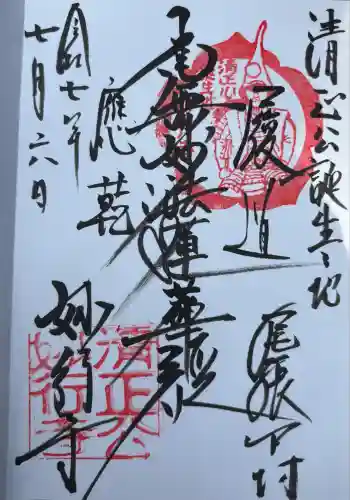 清正公誕生之地
尾張中村
慶道
南無妙法蓮華経
應乾
妙行寺
七月六日
清正公
妙行寺